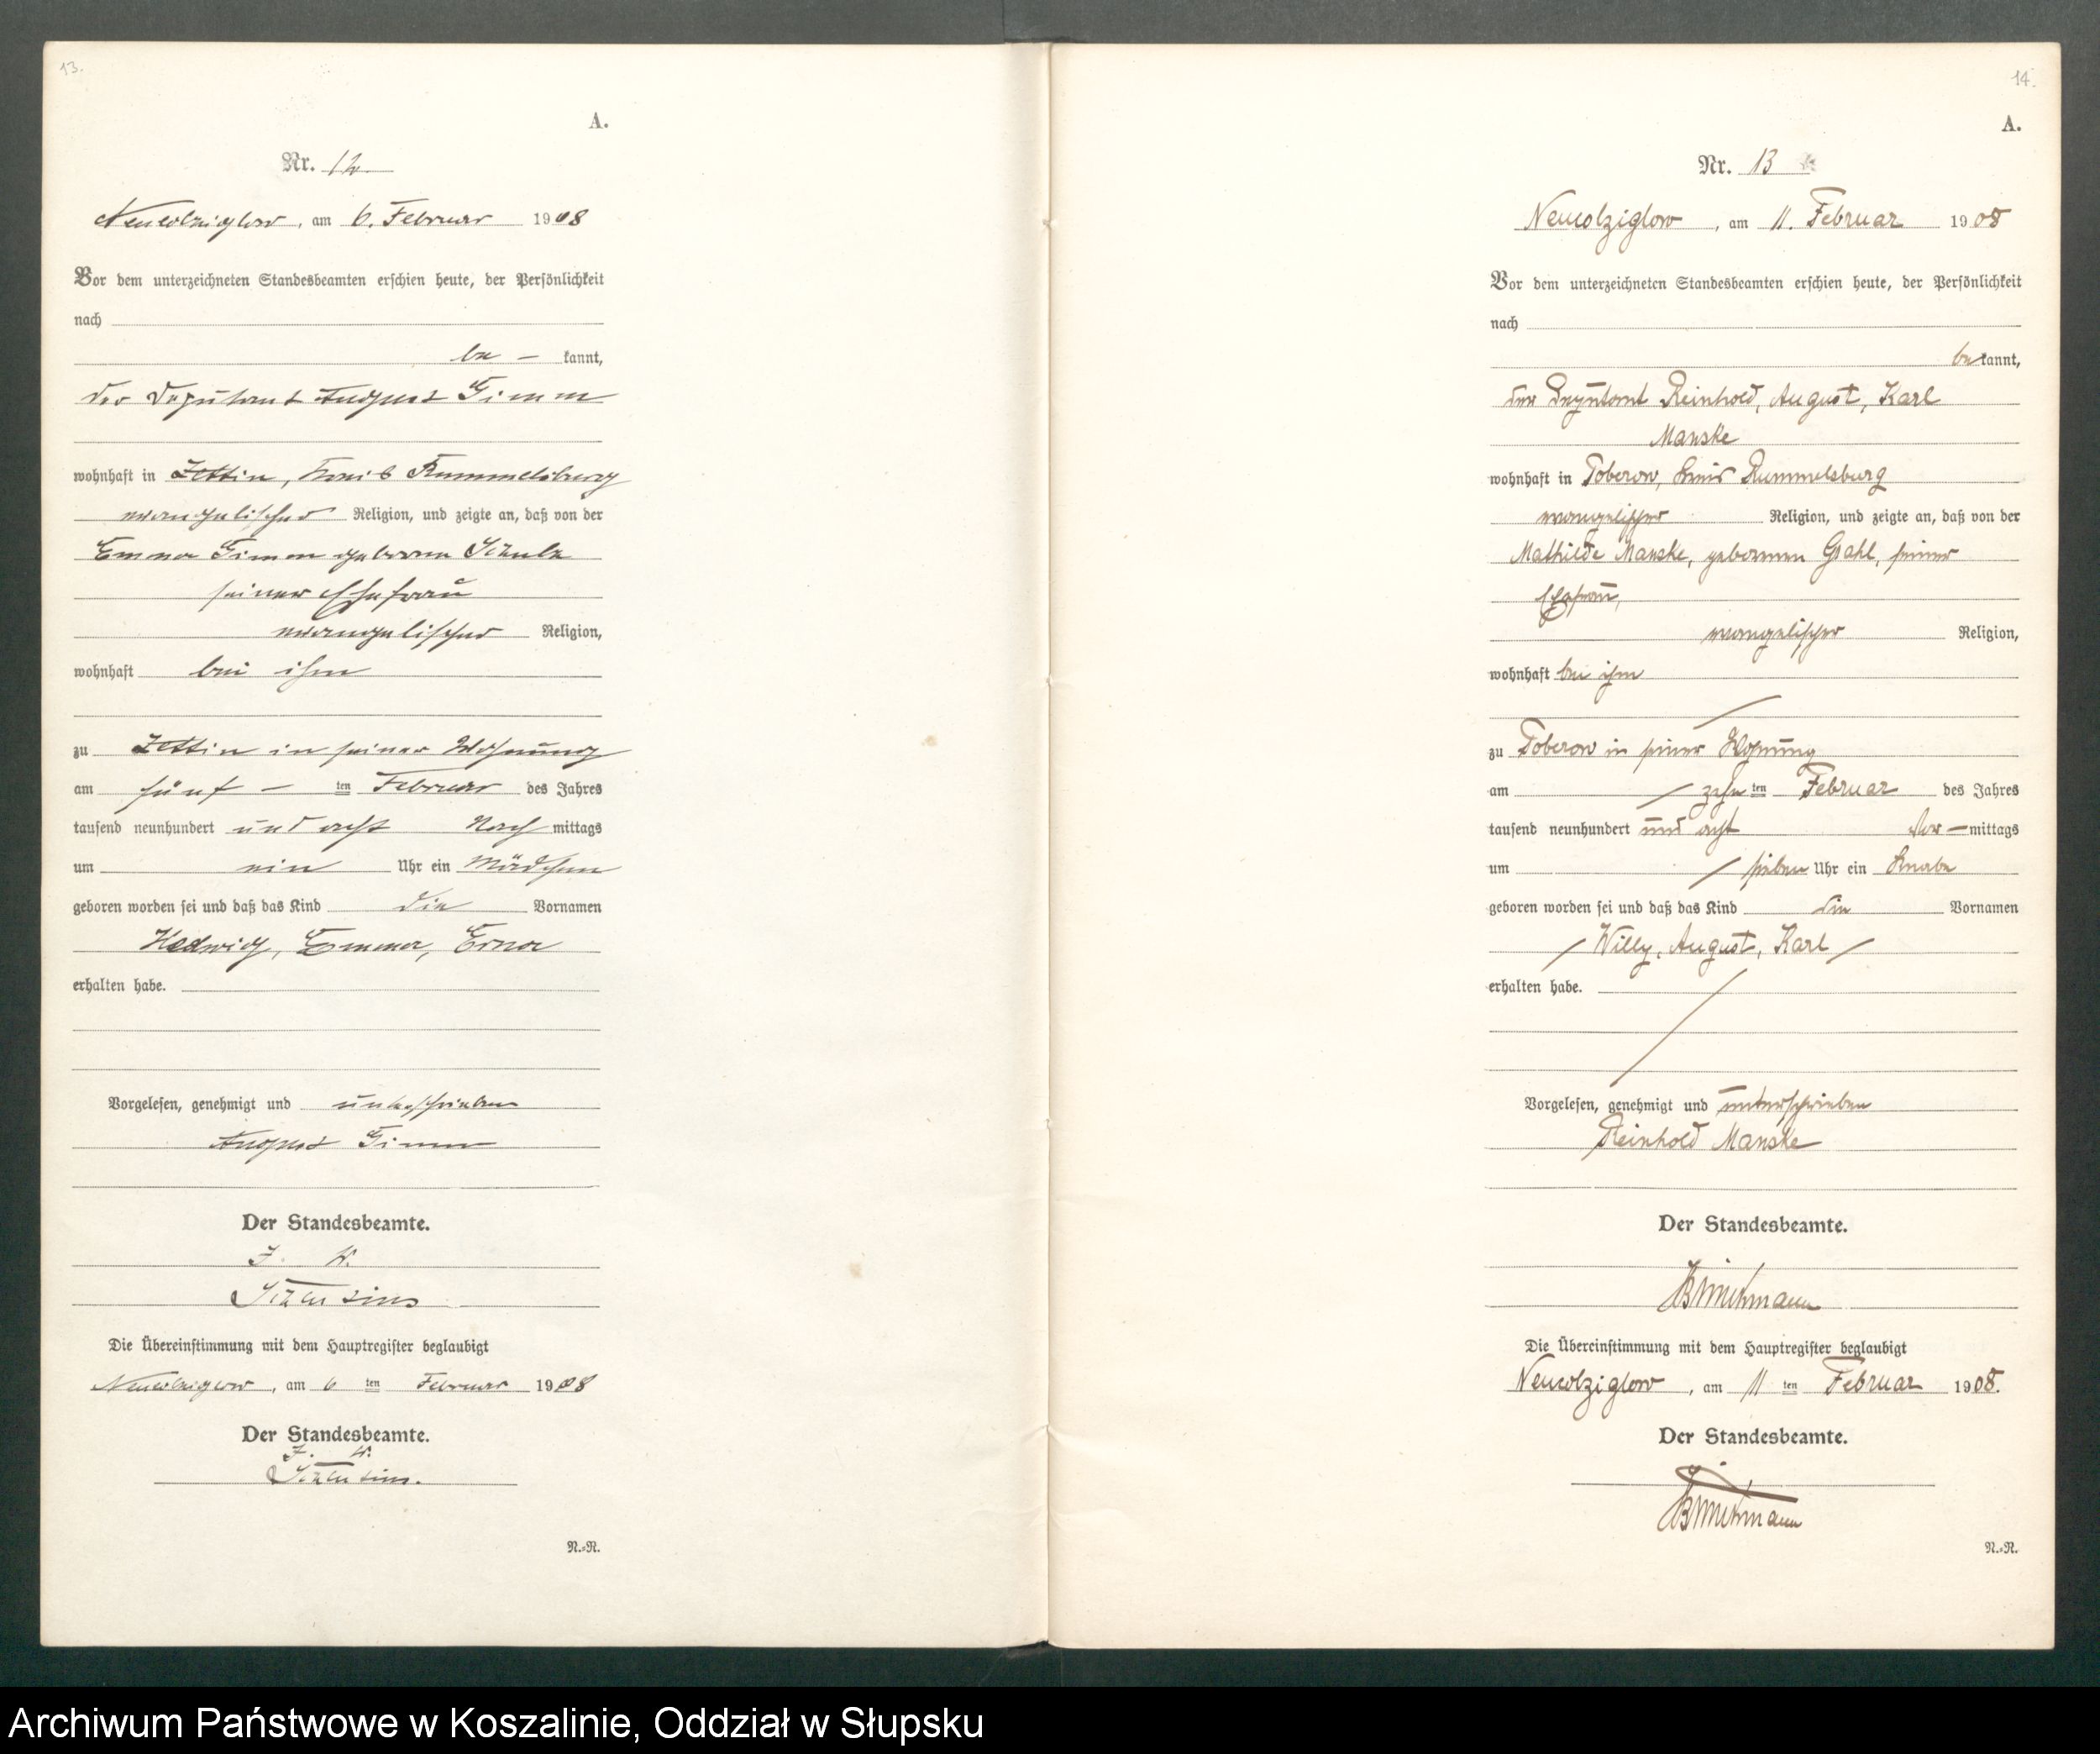 13.
A.
Nr. 12.
Neukolziglow, am 6. Februar 1908
Vor dem unterzeichneten Standesbeamten erschien heute, der Persönlichkeit
nach
be - kannt,
der Deputant August Timm
wohnhaft in Zettin, Kreis Rummelsburg
evangelischer Religion, und zeigte an, daß von der
Emma Timm geborene Schulz
seiner Ehefrau
evangelischer Religion,
wohnhaft bei ihm
zu Zettin in seiner Wohnung
am fünf - ten Februar des Jahres
tausend neunhundert und acht Nach mittags
um ein Uhr ein Mädchen
geboren worden sei und daß das Kind die Vornamen
Hedwig, Emma, Erna
erhalten habe.
Vorgelesen, genehmigt und unterschrieben
August Timm
Der Standesbeamte.
J. V.
Die Übereinstimmung mit dem Hauptregister beglaubigt
Neukolziglow, am 6 ten Februar 1908
Der Standesbeamte.
J. V.
N.-R.
14.
A.
Nr. 13
Neucolziglow, am 11. Februar 1908
Vor dem unterzeichneten Standesbeamten erschien heute, der Persönlichkeit
nach
bekannt,
der Deputant Reinhold, August, Karl
Manske
wohnhaft in Toberow, Kreis Rummelsburg
evangelischer Religion, und zeigte an, daß von der
Mathilde Manske, geborenen Grahl, seiner
Ehefrau,
evangelischer Religion,
wohnhaft bei ihm
zu Toberow in seiner Wohnung
am zehn ten Februar des Jahres
tausend neunhundert und acht Vor - mittags
um sieben Uhr ein Knabe
geboren worden sei und daß das Kind die Vornamen
Willy, August, Karl
erhalten habe.
Vorgelesen, genehmigt und unterschrieben
Reinhold Manske
Der Standesbeamte.
Die Übereinstimmung mit dem Hauptregister beglaubigt
Neucolziglow, am 11 ten Februar 1908.
Der Standesbeamte.
N.-R.
Archiwum Państwowe w Koszalinie, Oddział w Słupsku